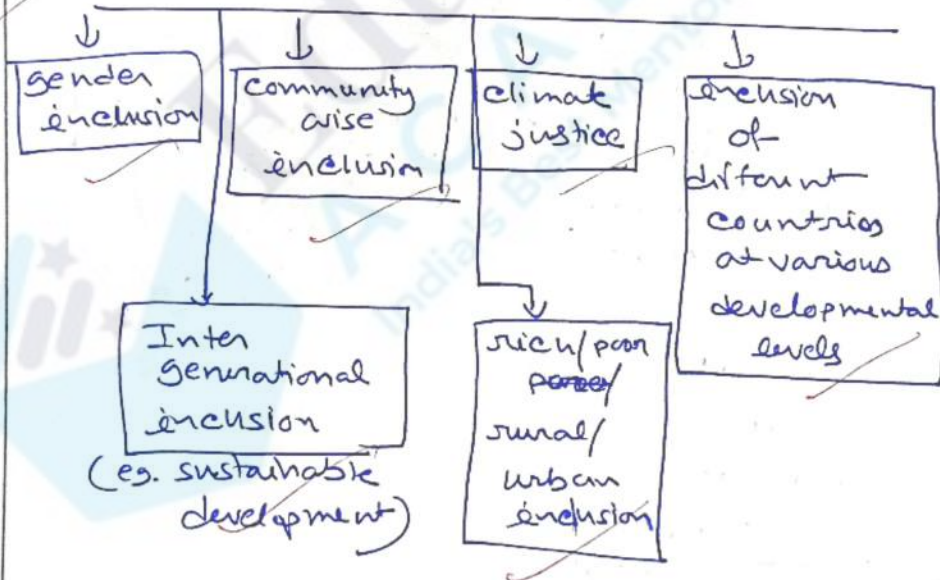 gender
inclusion
community
wise
inclusion
climate
justice
inclusion
of
different
countries
at various
developmental
levels
Inter
generational
inclusion
(eg. sustainable
development)
rich/poor
/
rural/
urban
inclusion
India's Best Mento